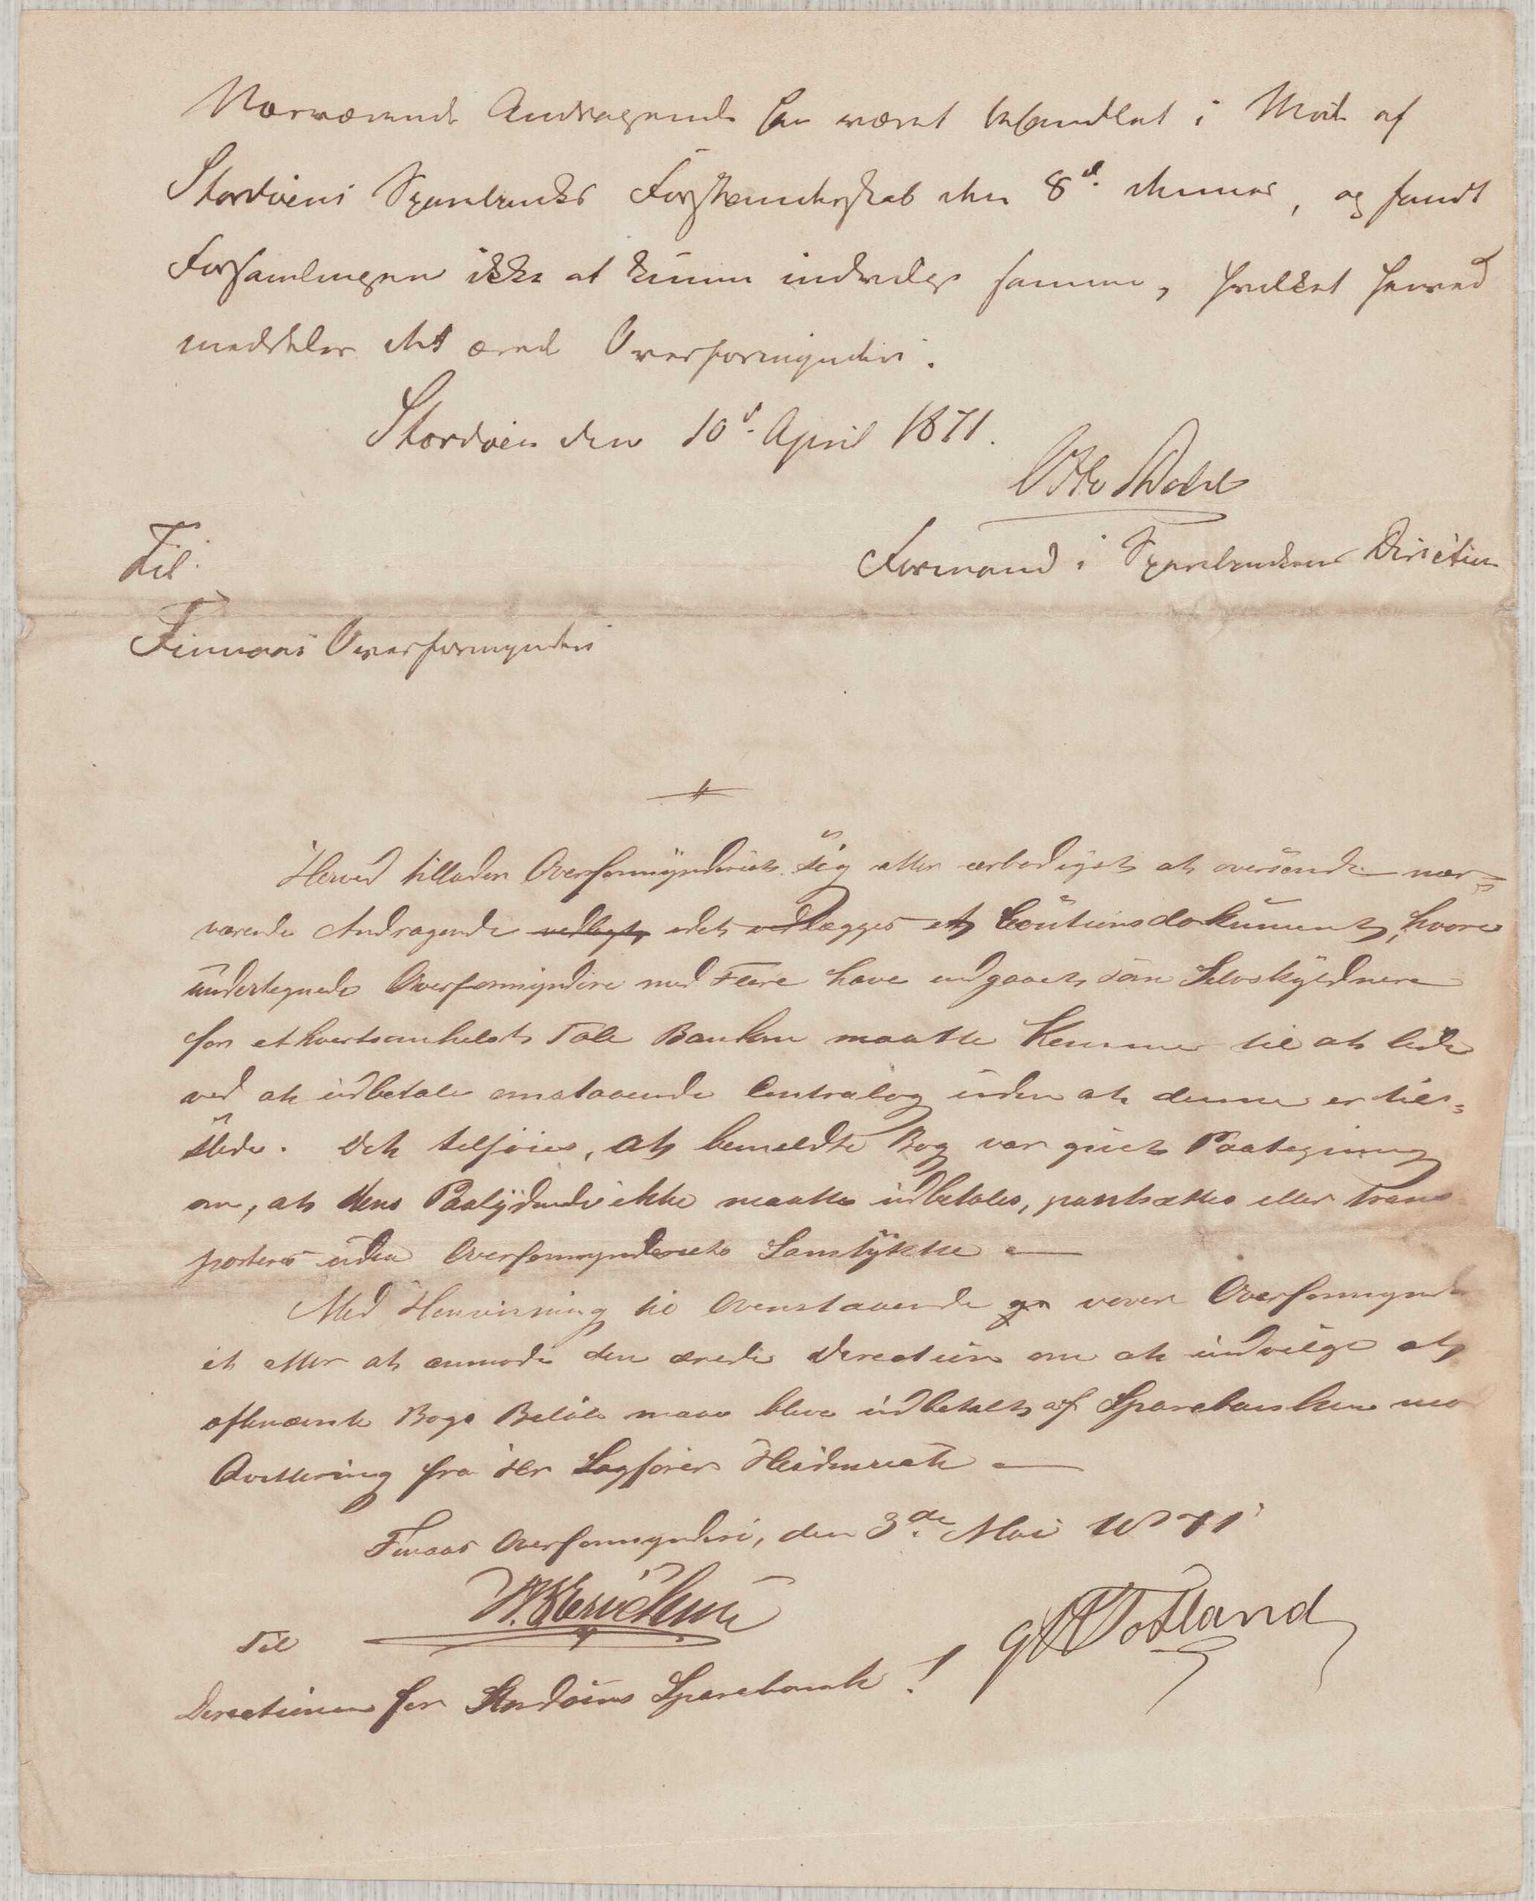 Nærværende Andragende har været behandlet i Møde af
Stordøens Sparebanks Forstanderskab den 8d. dennes, og fandt
Forsamlingen ikke at kunne indvilge samme, hvilket herved
meddeles det ærede Overformynderi.
Stordøen den 10d. April 1871.
Otto Dahl
Formand i Sparebankens Direction
Til
Finnaas Overformynderi
Herved tillader Overformynderiet sig atter ærbødigst at oversende nær=
værende Andragende vedlagt, idet vedlægges et Cautionsdokument, hvori
undertegnede Overformyndere med Flere have indgaaet som Selvskyldnere
for ethvertsomhelst Tab Banken maatte komme til at lide
ved at udbetale omstaaende Contrabog uden at denne er til=
stede. Det tilføies, at bemeldte Bog var givet Paategning
om, at dens Paalydende ikke maatte udbetales, pantsættes eller trans
porteres uden Overformynderiets Samtykke
Med Henvisning til Ovenstaaende vover Overformynderi
et atter at anmode den ærede Direction om at indvilge at
ofnævnte Bogs Beløb maa blive udbetalt af Sparebanken mod
Qvittering fra Hr Sagfører Heidenreich
Finaas Overformynderi, den 3de Mai 1871
G Totland
Til
Directionen for Stordøens Sparebank!